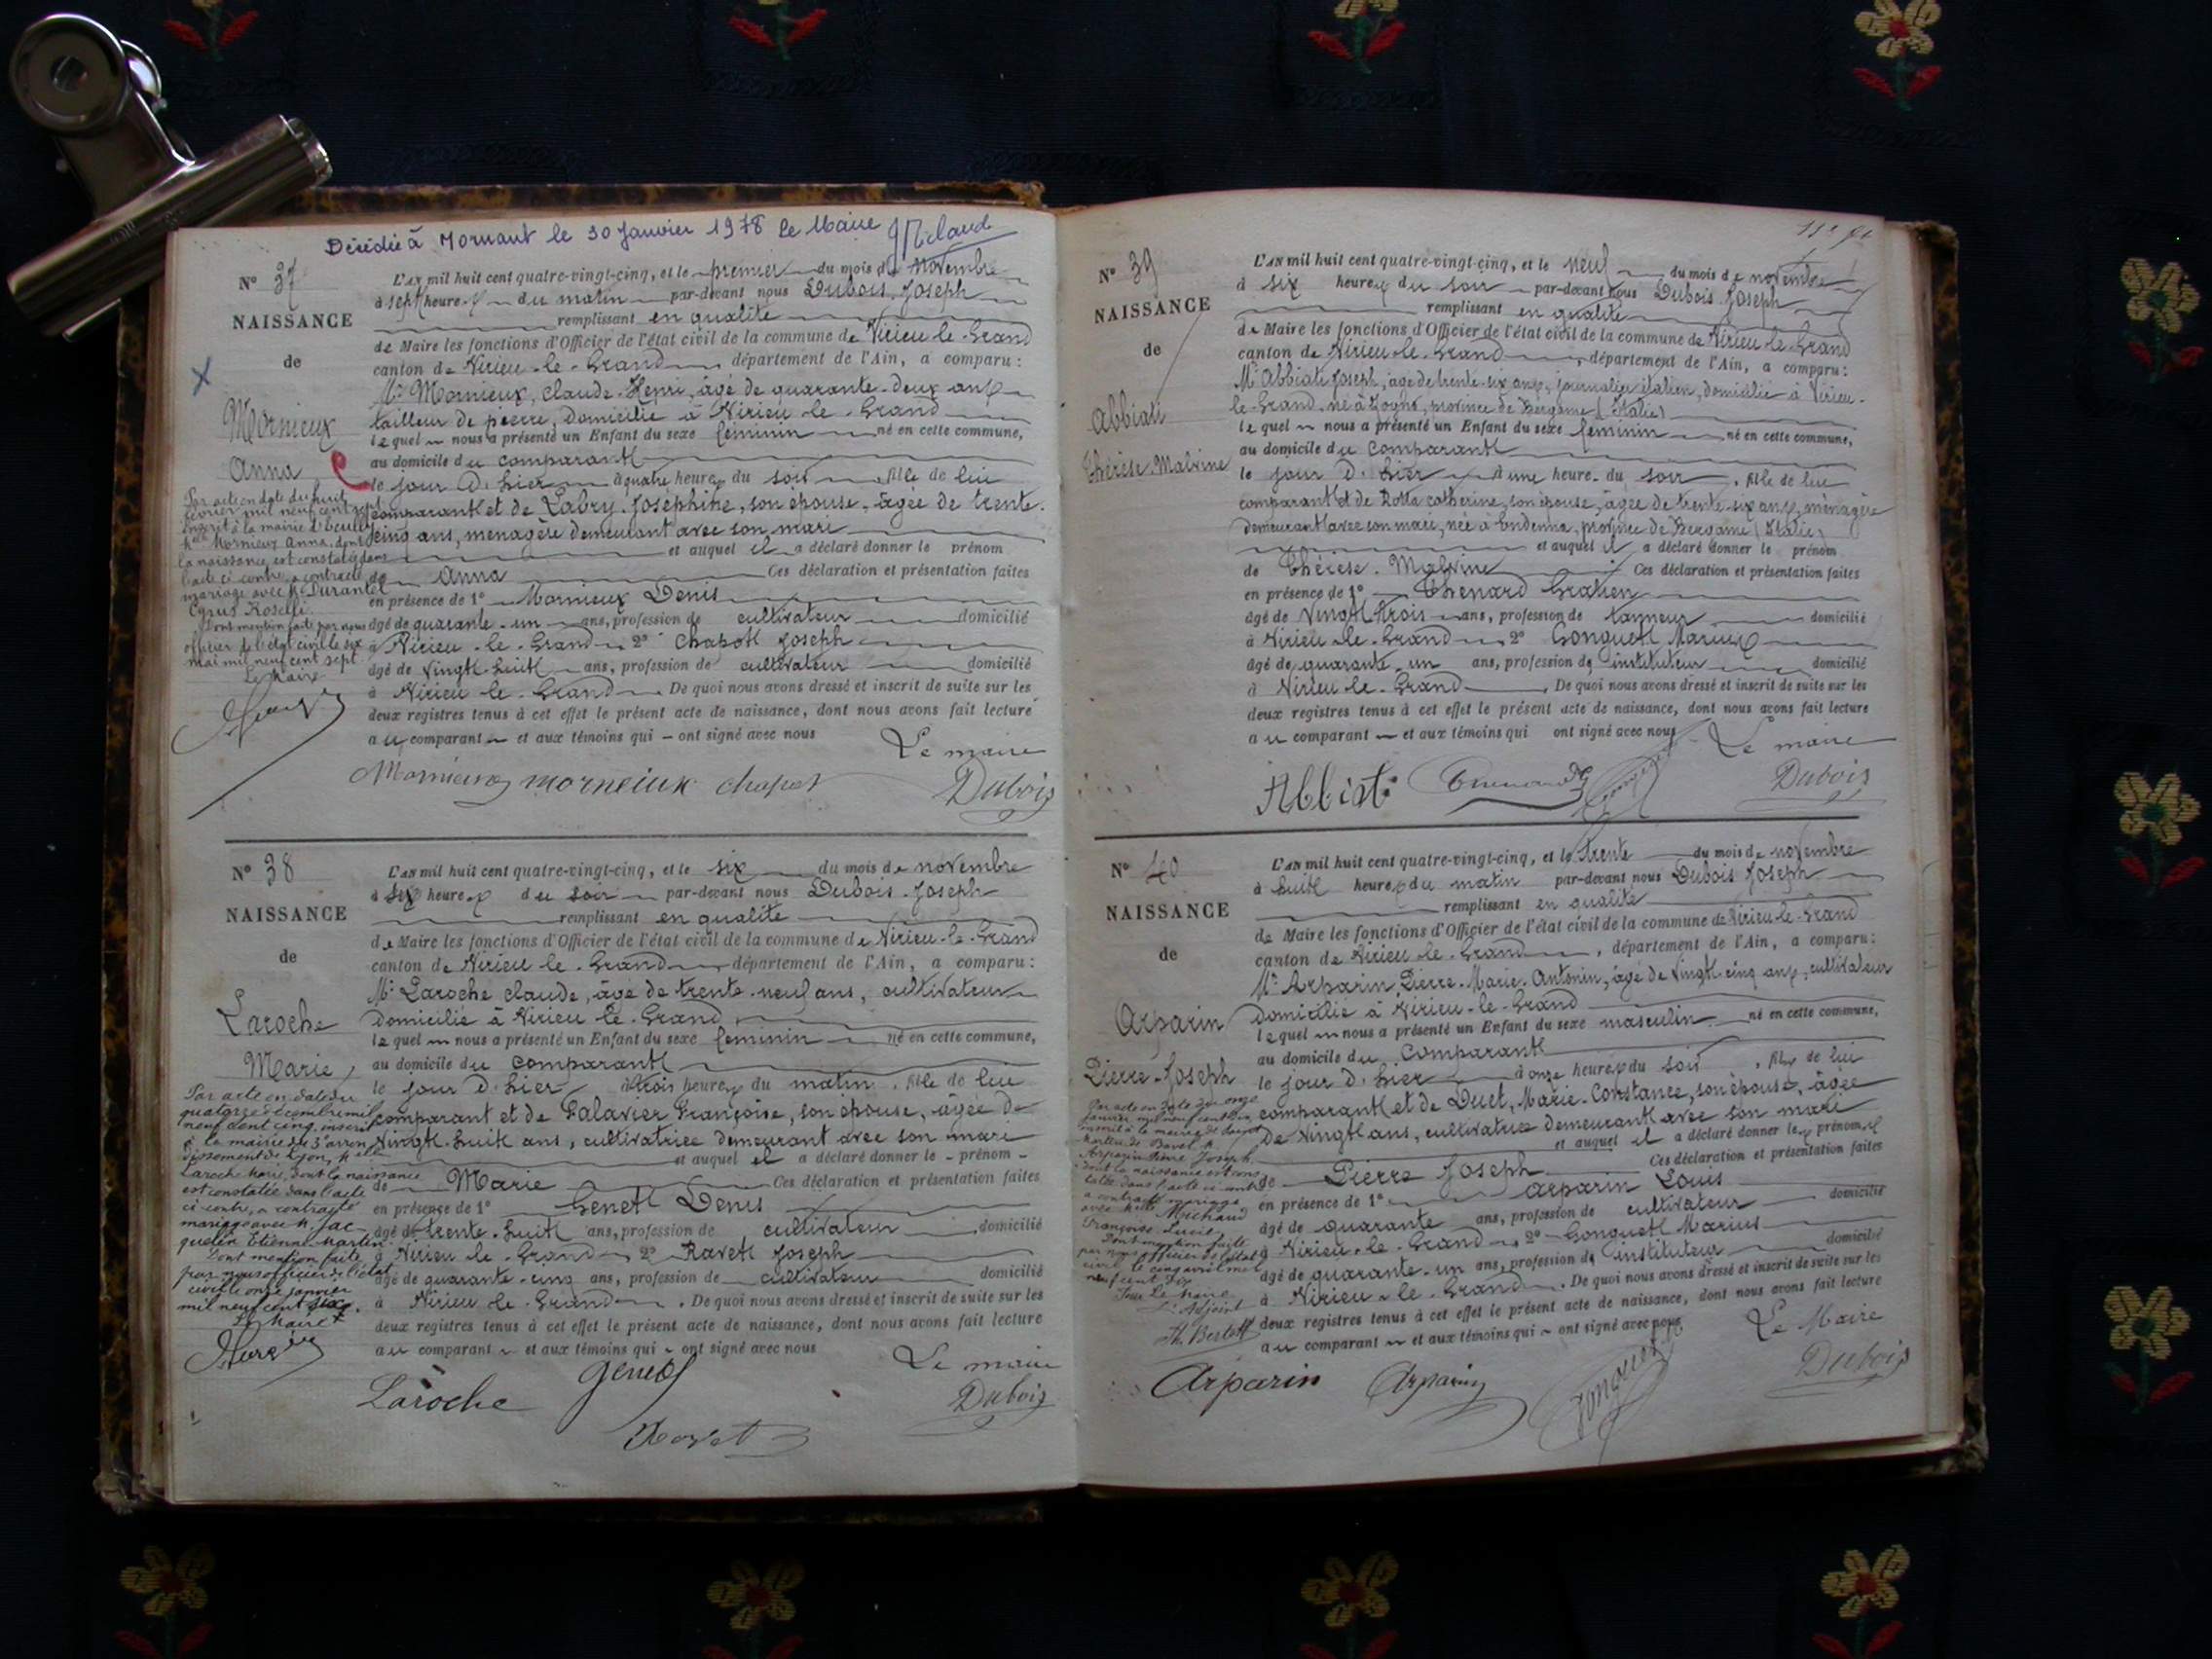 Décédée à Mornant le 30 Janvier 1978 Le Maire
N° 37
NAISSANCE
de
Mornieux
Anna
L'AN mil huit cent quatre-vingt-cinq, et le premier du mois de novembre
à sept heures du matin par-devant nous Dubois Joseph
remplissant en qualité
de Maire les fonctions d'Officier de l'état civil de la commune de Virieu-le-Grand
canton de Virieu-le-Grand département de l'Ain, a comparu :
Mr Mornieux, Claude-Henri, âgé de quarante-deux ans
tailleur de pierre, domicilié à Virieu-le-Grand
lequel nous a présenté un Enfant du sexe féminin né en cette commune,
au domicile du comparant
le jour d'hier à quatre heures du soir, fille de lui
comparant et de Labry Joséphine, son épouse, âgée de trente-
cinq ans, ménagère demeurant avec son mari
et auquel il a déclaré donner le prénom
de Anna Ces déclaration et présentation faites
en présence de 1° Mornieux Denis
âgé de quarante-un ans, profession de cultivateur domicilié
à Virieu-le-Grand 2° Chapot Joseph
âgé de vingt-huit ans, profession de cultivateur domicilié
à Virieu-le-Grand. De quoi nous avons dressé et inscrit de suite sur les
deux registres tenus à cet effet le présent acte de naissance, dont nous avons fait lecture
au comparant et aux témoins qui ont signé avec nous
Le maire
Mornieux morneiux chapot Dubois
Par acte en date du huit
février mil neuf cent sept
inscrit à la mairie d'Ecully
Melle Mornieux Anna, dont
la naissance est constatée dans
l'acte ci-contre a contracté
mariage avec Mr Durantel
Cyrus Roselli.
Dont mention faite par nous
officier de l'état civil le six
mai mil neuf cent sept.
Le Maire
N° 38
NAISSANCE
de
Laroche
Marie
L'AN mil huit cent quatre-vingt-cinq, et le six du mois de novembre
à six heures du soir par-devant nous Dubois Joseph
remplissant en qualité
de Maire les fonctions d'Officier de l'état civil de la commune de Virieu-le-Grand
canton de Virieu-le-Grand département de l'Ain, a comparu :
Mr Laroche Claude, âgé de trente-neuf ans, cultivateur
domicilié à Virieu-le-Grand
lequel nous a présenté un Enfant du sexe féminin né en cette commune,
au domicile du comparant
le jour d'hier à trois heures du matin, fille de lui
comparant et de Palavier Françoise, son épouse, âgée de
vingt-huit ans, cultivatrice demeurant avec son mari
et auquel il a déclaré donner le prénom
de Marie Ces déclaration et présentation faites
en présence de 1° Genet Denis
âgé de trente-huit ans, profession de cultivateur domicilié
à Virieu-le-Grand 2° Ravet Joseph
âgé de quarante-cinq ans, profession de cultivateur domicilié
à Virieu-le-Grand. De quoi nous avons dressé et inscrit de suite sur les
deux registres tenus à cet effet le présent acte de naissance, dont nous avons fait lecture
au comparant et aux témoins qui ont signé avec nous
Le maire
Laroche Genet Dubois
Ravet
Par acte en date du
quatorze décembre mil
neuf cent cinq, inscrit
à la mairie du 3e arron
dissement de Lyon, Melle
Laroche Marie, dont la naissance
est constatée dans l'acte
ci-contre, a contracté
mariage avec M. Jac-
quelin Etienne-Martin
Dont mention faite
par nous officier de l'état
civil le onze janvier
mil neuf cent six.
Le Maire
N° 39
NAISSANCE
de
Abbiati
Thérèse-Malvine
L'AN mil huit cent quatre-vingt-cinq, et le neuf du mois de novembre
à six heures du soir par-devant nous Dubois Joseph
remplissant en qualité
de Maire les fonctions d'Officier de l'état civil de la commune de Virieu-le-Grand
canton de Virieu-le-Grand, département de l'Ain, a comparu :
Mr Abbiati Joseph, âgé de trente-six ans, journalier italien, domicilié à Virieu-
le-Grand, né à province de Bergame (Italie)
lequel nous a présenté un Enfant du sexe féminin né en cette commune,
au domicile du comparant
le jour d'hier à une heure du soir, fille de lui
comparant et de Rotta Catherine, son épouse, âgée de trente-six ans, ménagère
demeurant avec son mari, née à Endenna, province de Bergame (Italie)
et auquel il a déclaré donner le prénom
de Thérèse-Malvine Ces déclaration et présentation faites
en présence de 1° Thenard Gratien
âgé de vingt-trois ans, profession de tanneur domicilié
à Virieu-le-Grand 2° Gonguet Marius
âgé de quarante-un ans, profession de instituteur domicilié
à Virieu-le-Grand. De quoi nous avons dressé et inscrit de suite sur les
deux registres tenus à cet effet le présent acte de naissance, dont nous avons fait lecture
au comparant et aux témoins qui ont signé avec nous
Le maire
Abbiati Dubois
N° 40
NAISSANCE
de
Arparin
Pierre-Joseph
L'AN mil huit cent quatre-vingt-cinq, et le trente du mois de novembre
à huit heures du matin par-devant nous Dubois Joseph
remplissant en qualité
de Maire les fonctions d'Officier de l'état civil de la commune de Virieu-le-Grand
canton de Virieu-le-Grand, département de l'Ain, a comparu :
Mr Arparin, Pierre-Marie-Antonin, âgé de vingt-cinq ans, cultivateur
domicilié à Virieu-le-Grand
lequel nous a présenté un Enfant du sexe masculin né en cette commune,
au domicile du comparant
le jour d'hier à onze heures du soir, fils de lui
comparant et de Duet, Marie-Constance, son épouse, âgée
de vingt ans, cultivatrice demeurant avec son mari
et auquel il a déclaré donner les prénoms
de Pierre Joseph Ces déclaration et présentation faites
en présence de 1° Arparin Louis
âgé de quarante ans, profession de cultivateur domicilié
à Virieu-le-Grand 2° Gonguet Marius
âgé de quarante-un ans, profession de instituteur domicilié
à Virieu-le-Grand. De quoi nous avons dressé et inscrit de suite sur les
deux registres tenus à cet effet le présent acte de naissance, dont nous avons fait lecture
au comparant et aux témoins qui ont signé avec nous
Le Maire
Arparin Arparin Gonguet Dubois
Par acte en date du onze
janvier mil neuf cent dix
inscrit à la mairie de Saint
Martin de Bavel, M.
Arparin Pierre Joseph
dont la naissance est cons
tatée dans l'acte ci-contre
a contracté mariage
avec Melle Michaud
Françoise Lucie
Dont mention faite
par nous officier de l'état
civil le cinq avril mil
neuf cent dix
Pour Le Maire
L'Adjoint